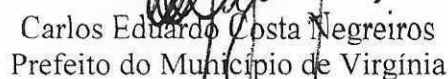 Carlos Eduardo Costa Negreiros
Prefeito do Município de Virgínia